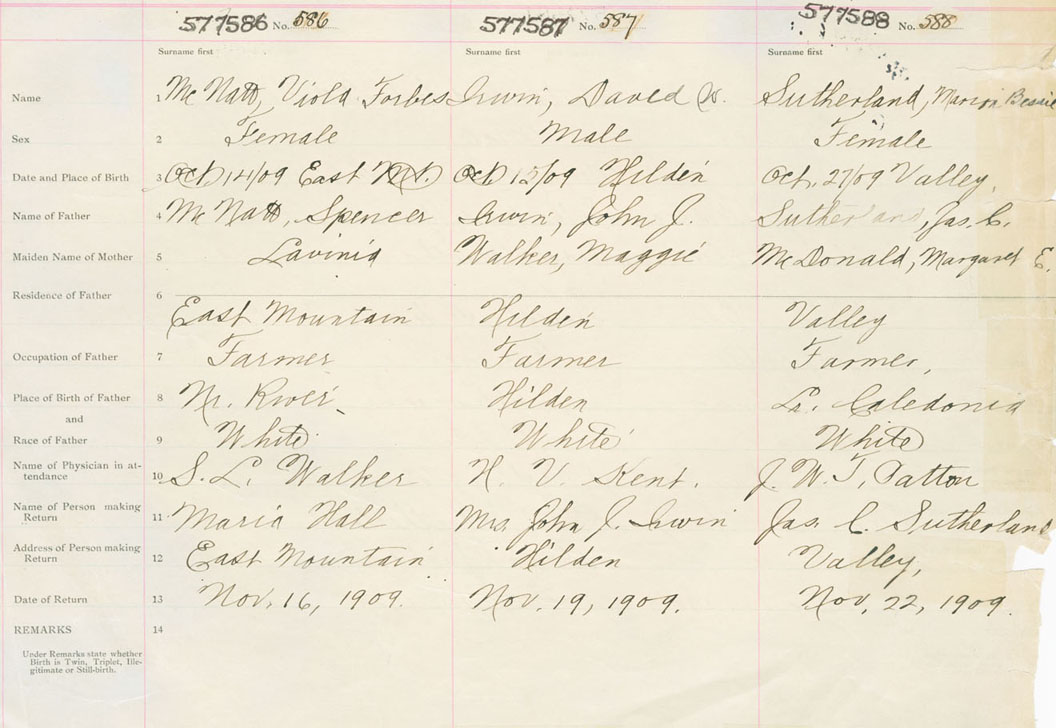 577586 No. 586 577587 No. 587 577588 No. 588
Surname first Surname first Surname first
Name 1 McNatt, Viola Forbes Irwin, David W. Sutherland, Marion Bessie
Sex 2 Female Male Female
Date and Place of Birth 3 Oct 14/09 East Mt. Oct 15/09 Hilden Oct. 27/09 Valley,
Name of Father 4 McNatt, Spencer Irwin, John J. Sutherland, Jas. C.
Maiden Name of Mother 5 Lavinia Walker, Maggie McDonald, Margaret E.
Residence of Father 6
East Mountain Hilden Valley
Occupation of Father 7 Farmer Farmer Farmer,
Place of Birth of Father 8 N. River Hilden Caledonia
and
Race of Father 9 White White White
Name of Physician in at-
tendance 10 S. L. Walker H. V. Kent. J. W. T. Patton
Name of Person making
Return 11 Maria Hall Mrs John J. Irwin Jas. C. Sutherland
Address of Person making
Return 12 East Mountain Hilden Valley,
Date of Return 13 Nov. 16, 1909. Nov. 19, 1909. Nov. 22, 1909.
REMARKS 14
Under Remarks state whether
Birth is Twin, Triplet, Ille-
gitimate or Still-birth.